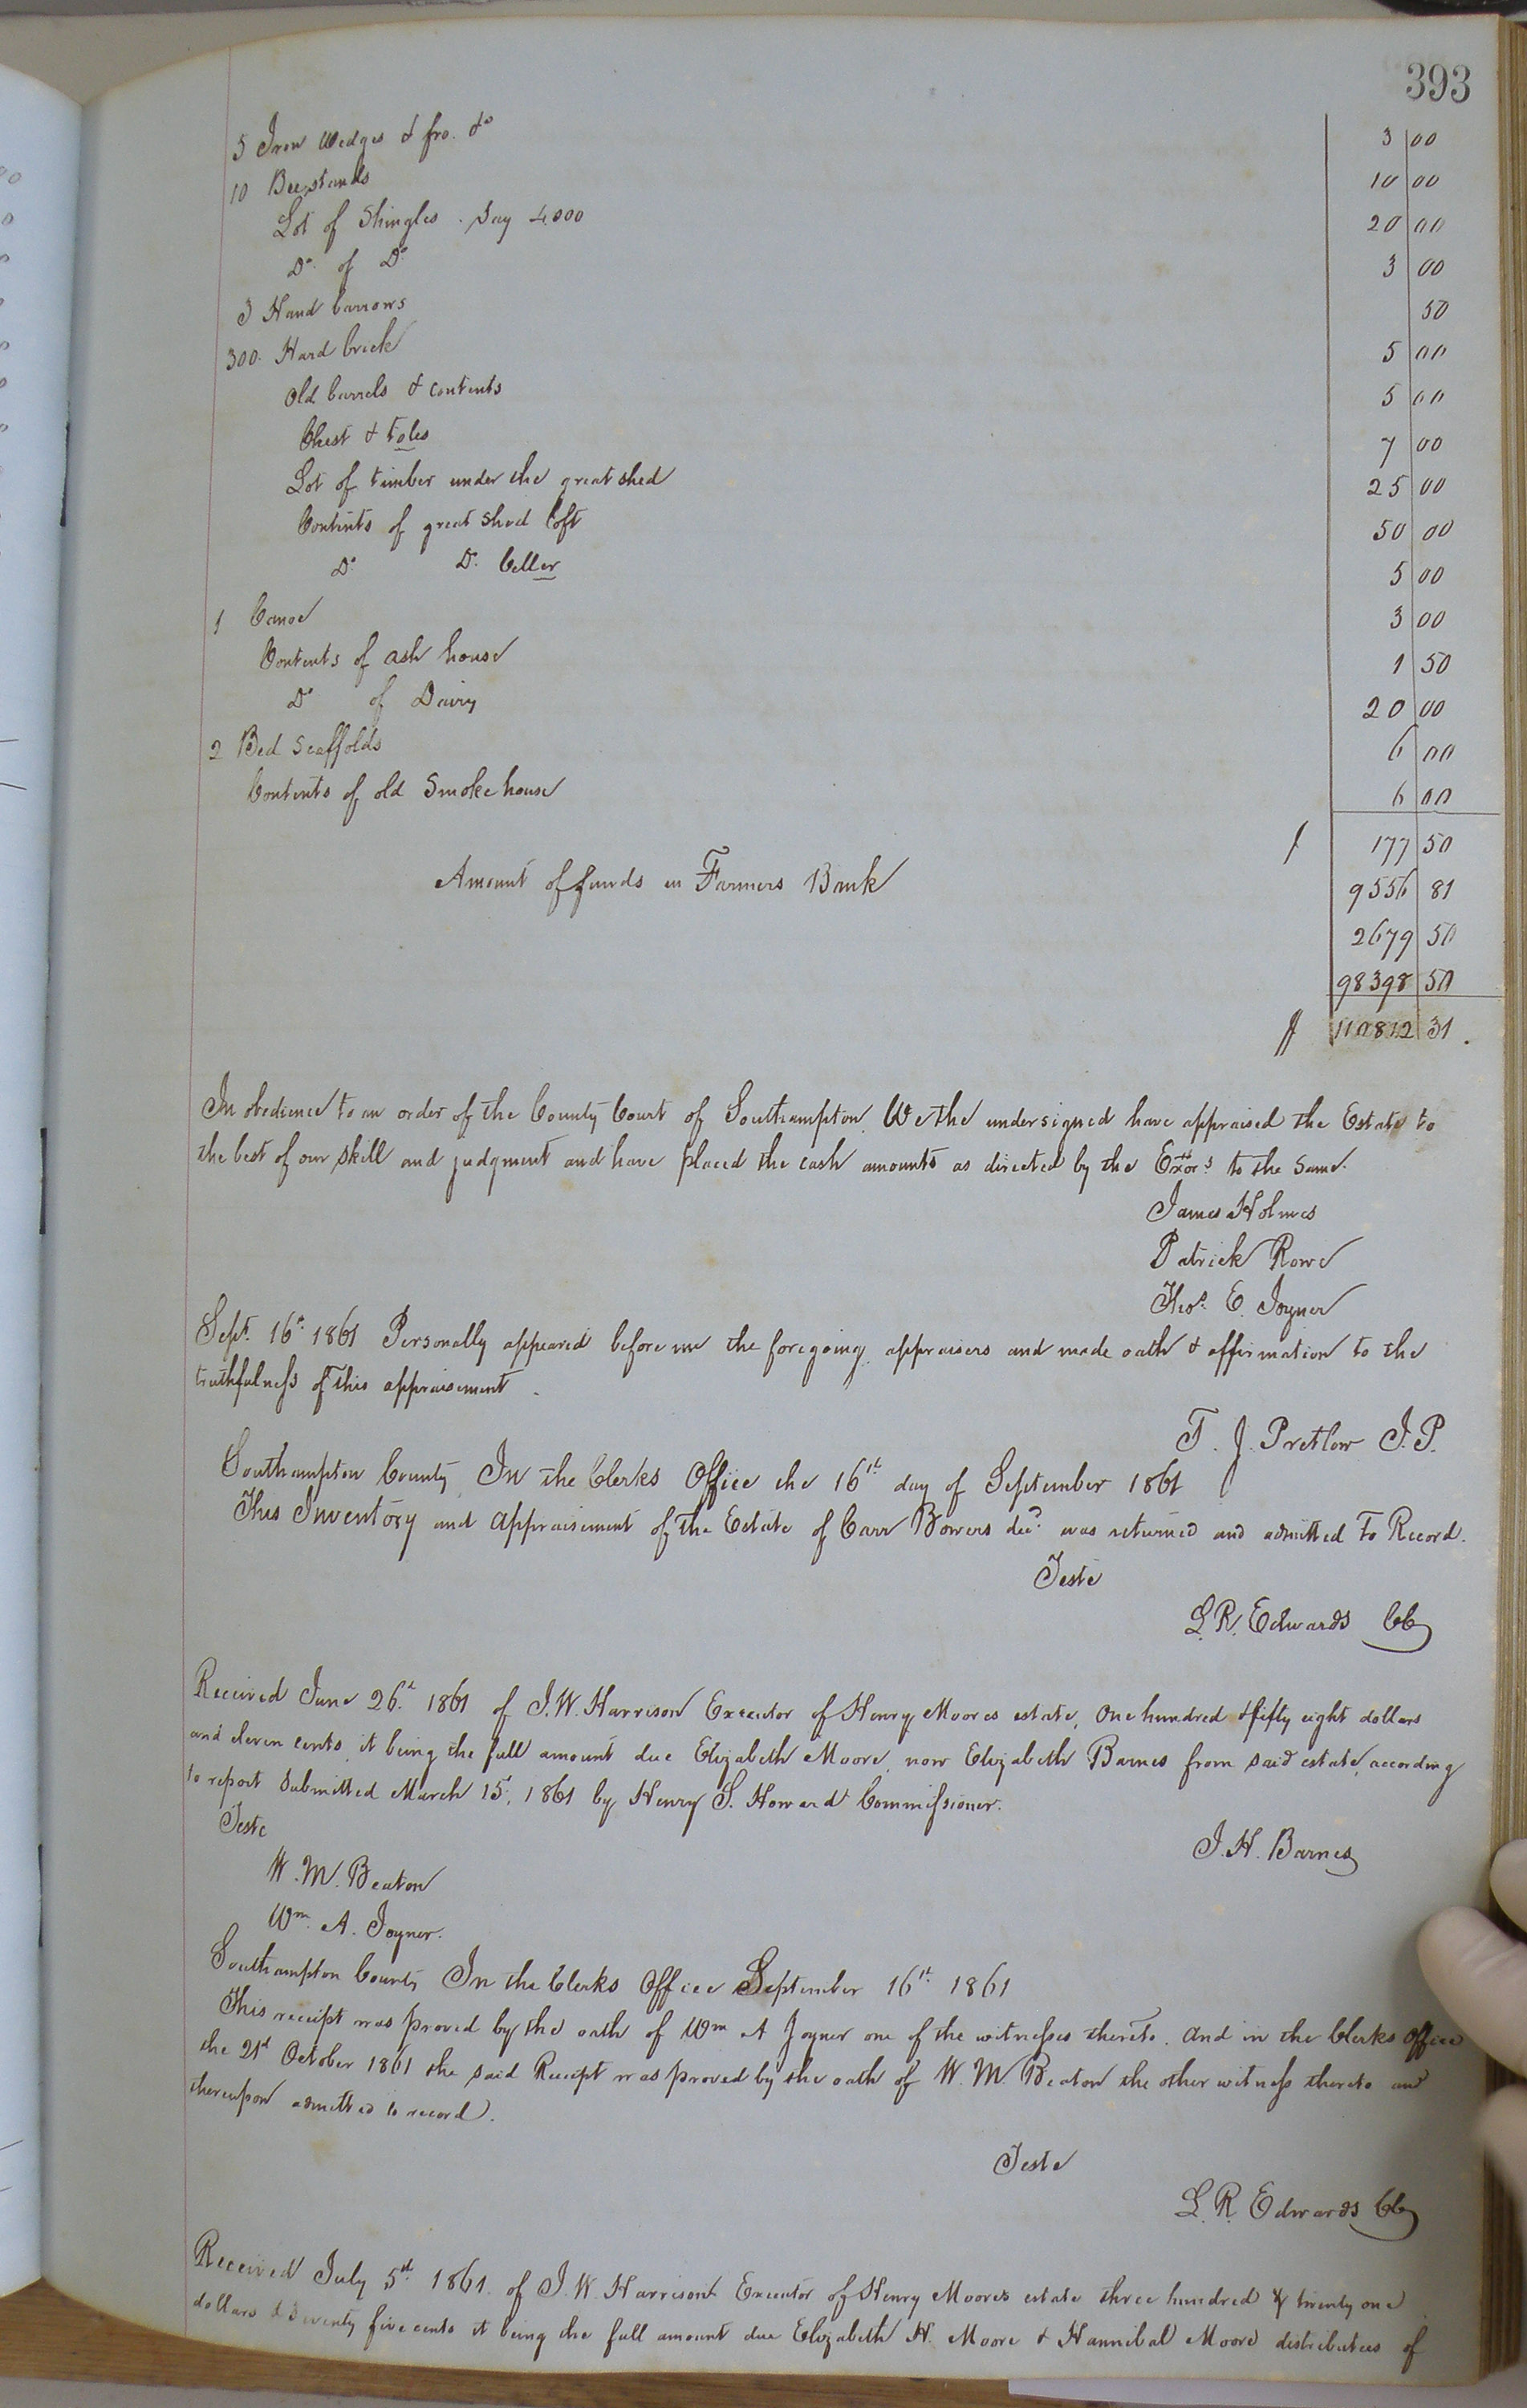 393
5 Iron Wedges & fro. &c 3 00
10 Bee stands 10 00
Lot of Shingles . Say 4,000 20 00
Do. of Do 3 00
3 Hand barrows 50
300. Hard brick 5 00
Old barrels & contents 5 00
Chest & toles 7 00
Lot of timber under the great shed 25 00
Contents of great Shed loft 50 00
Do. Do. Celler 5 00
1 Canoe 3 00
Contents of ash house 1 50
Do of Dairy 20 00
2 Bed Scaffolds 6 00
Contents of old Smoke house 6 00
177 50
Amount of funds in Farmers Bank 9556 81
2679 50
98398 50
110812 31.
In obedience to an order of the County Court of Southampton. We the undersigned have appraised the Estate to
the best of our skill and judgment and have placed the cash amounts as directed by the Exors to the Same.
James Holmes
Patrick Rowe
Thos. E. Joyner
Sept. 16th 1861 Personally appeared before me the foregoing appraisers and made oath & affirmation to the
truthfulness of this appraisement.
T. J. Pretlow J.P.
Southampton County In the Clerks Office the 16th day of September 1861
This Inventory and appraisement of the Estate of Carr Bowers decd. was returned and admitted to Record.
Teste
L. R. Edwards CC
Received June 26th. 1861 of J. W. Harrison Executor of Henry Moores estate, One hundred & fifty eight dollars
and eleven cents, it being the full amount due Elizabeth Moore, now Elizabeth Barnes from said estate, according
to report Submitted March 15th, 1861 by Henry S. Howard Commissioner.
J. H. Barnes
Teste
W. M. Beaton
Wm. A. Joyner.
Southampton County In the Clerks Office September 16th. 1861
This receipt was proved by the oath of Wm A Joyner one of the witnesses thereto. And in the Clerks Office
the 21st October 1861 the said Receipt was proved by the oath of W. M. Beaton the other witness thereto and
thereupon admitted to record.
Teste
L. R. Edwards CC
Received July 5th. 1861. of J. W. Harrison Executor of Henry Moores estate three hundred & twenty one
dollars & Seventy five cents it being the full amount due Elizabeth H. Moore & Hannibal Moore distributees of